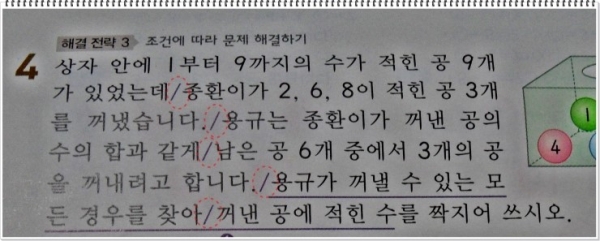 해결 전략 3 조건에 따라 문제 해결하기
4 상자 안에 1부터 9까지의 수가 적힌 공 9개
가 있었는데/종환이가 2, 6, 8이 적힌 공 3개
를 꺼냈습니다./용규는 종환이가 꺼낸 공의
수의 합과 같게/남은 공 6개 중에서 3개의 공
을 꺼내려고 합니다./용규가 꺼낼 수 있는 모
든 경우를 찾아/꺼낸 공에 적힌 수를 짝지어 쓰시오.
1
4